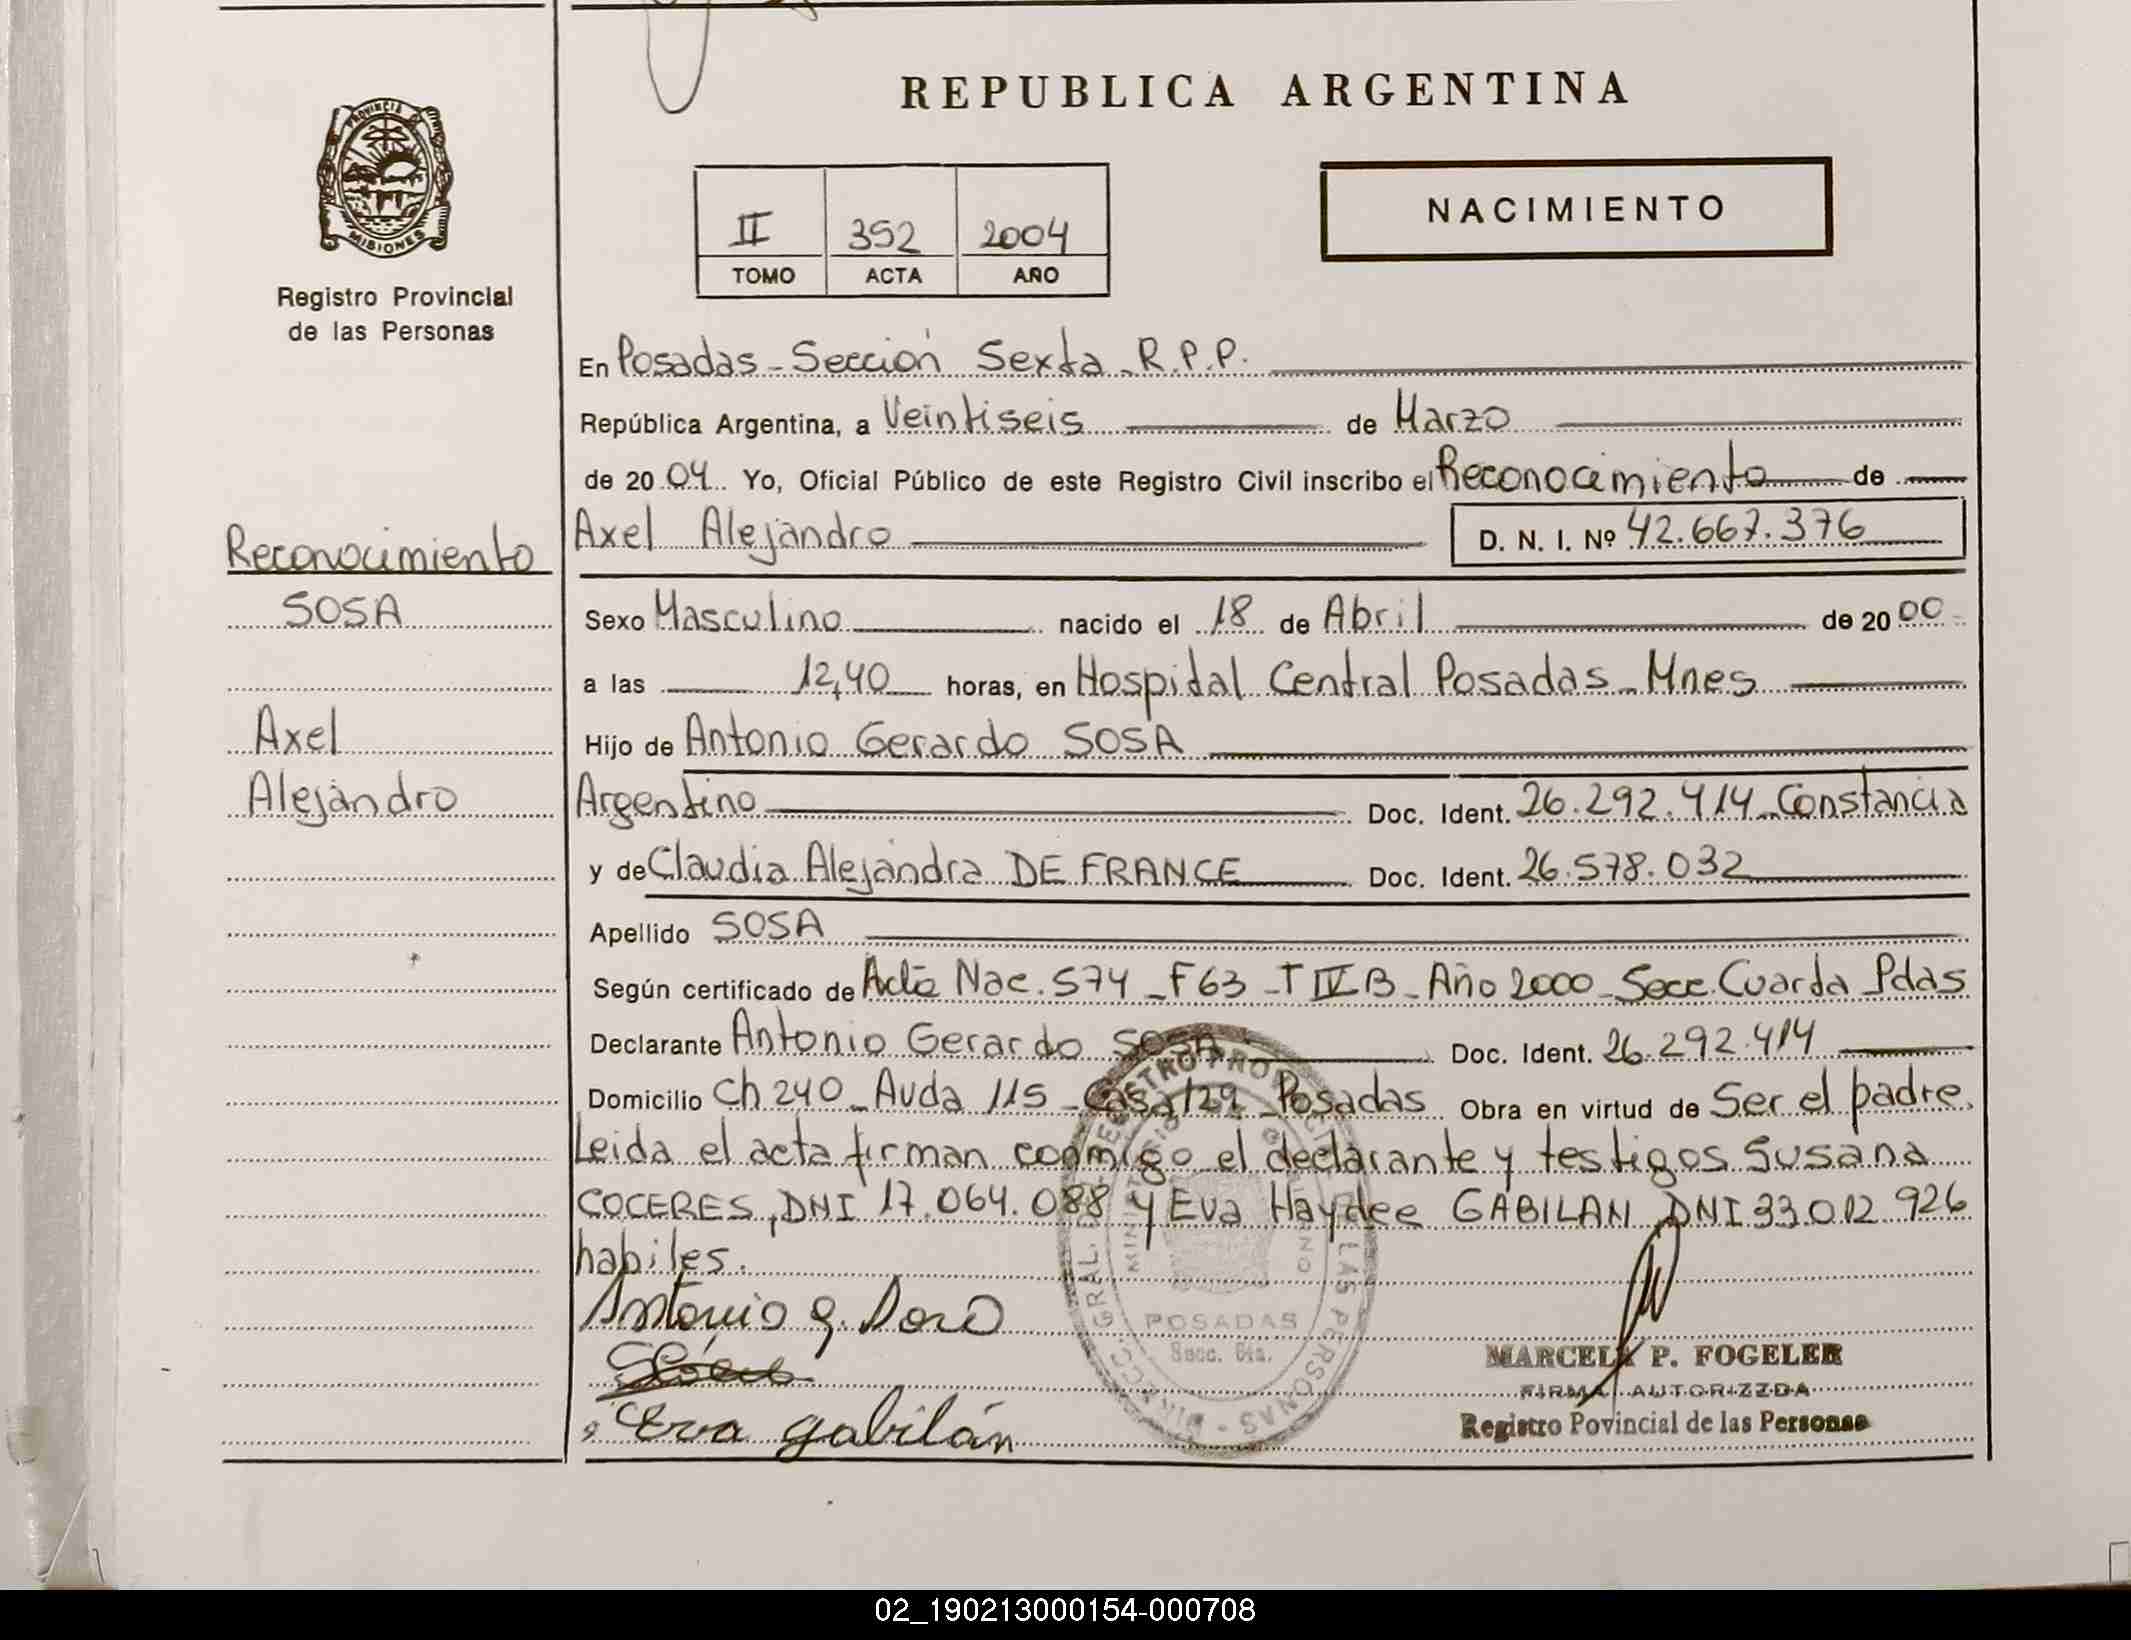 REPUBLICA ARGENTINA
PROVINCIA DE
MISIONES
Registro Provincial
de las Personas
II 352 2004
TOMO ACTA AÑO
NACIMIENTO
En Posadas - Sección Sexta - R.P.P.
República Argentina, a Veintiseis de Marzo
de 2004 Yo, Oficial Público de este Registro Civil inscribo el Reconocimiento de
Axel Alejandro D. N. I. Nº 42.667.376
Reconocimiento
SOSA
Axel
Alejandro
Sexo Masculino nacido el 18 de Abril de 2000
a las 12,40 horas, en Hospital Central Posadas - Mnes
Hijo de Antonio Gerardo SOSA
Argentino Doc. Ident. 26.292.414 - Constancia
y de Claudia Alejandra DE FRANCE Doc. Ident. 26.578.032
Apellido SOSA
Según certificado de Acta Nac. 574 - F 63 - T IV B - Año 2000 - Secc. Cuarda Pdas
Declarante Antonio Gerardo SOSA Doc. Ident. 26.292.414
Domicilio Ch 240 - Avda 115 - Casa 129 - Posadas Obra en virtud de Ser el padre.
Leida el acta firman conmigo el declarante y testigos Susana
COCERES, DNI 17.064.088 y Eva Haydee GABILAN, DNI 33.012.926
habiles.
Antonio g. Soso
Eva gabilán
POSADAS
Secc. 6ta.
MARCELA P. FOGELER
FIRMA AUTORIZZDA
Registro Povincial de las Personas
02_190213000154-000708